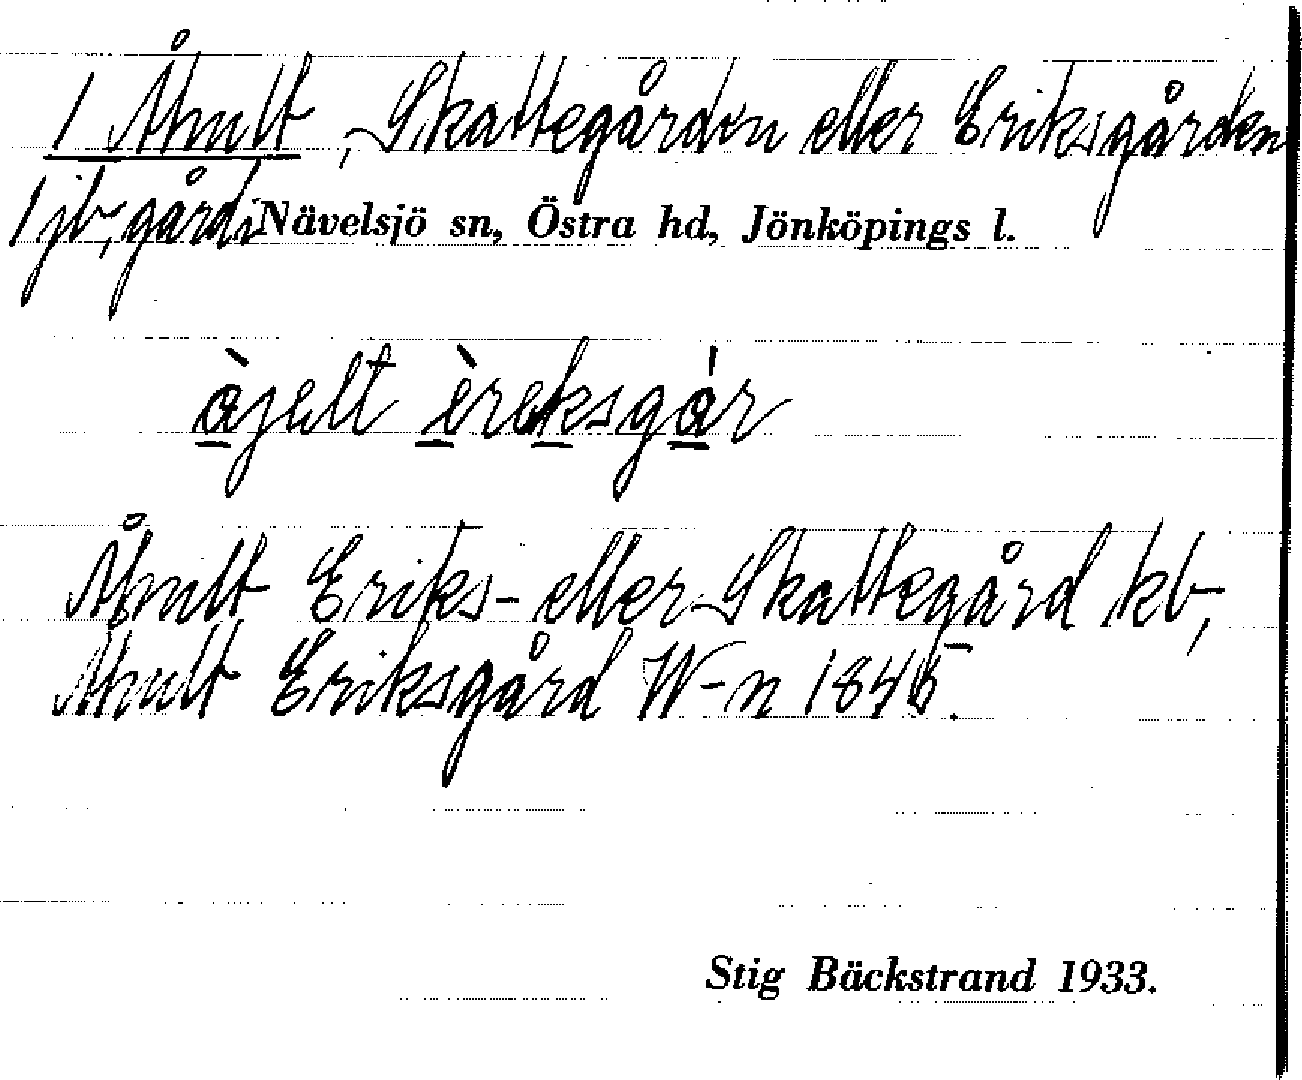 1 Åhult, Skattegården eller Eriksgården
1 jb, gård i Nävelsjö sn, Östra hd, Jönköpings l.
àjelt èreksgár
Åhult Eriks- eller Skattegård kb,
Åhult Eriksgård W-n 1845.
Stig Bäckstrand 1933.